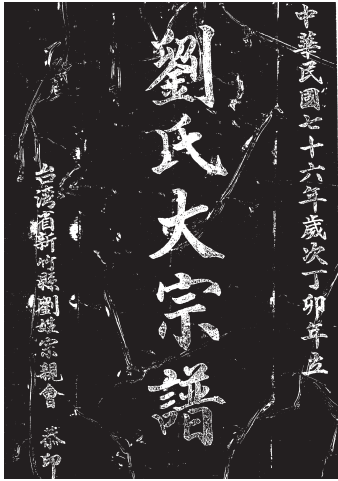 中華民國七十六年歲次丁卯年立
劉氏大宗譜
台湾省新竹縣劉姓宗親會 恭印